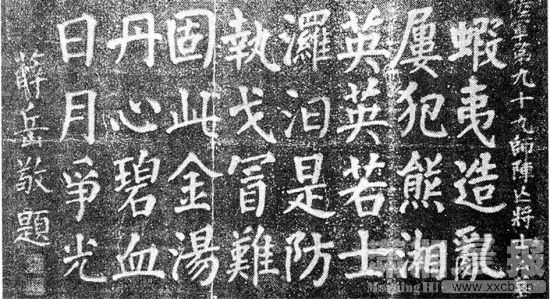 第九十九師陣亡將士
蝦夷造亂
屢犯熊湘
英英若士
汨是防
執戈冒難
固此金湯
丹心碧血
日月爭光
薛岳敬題
www.xxcb.cn